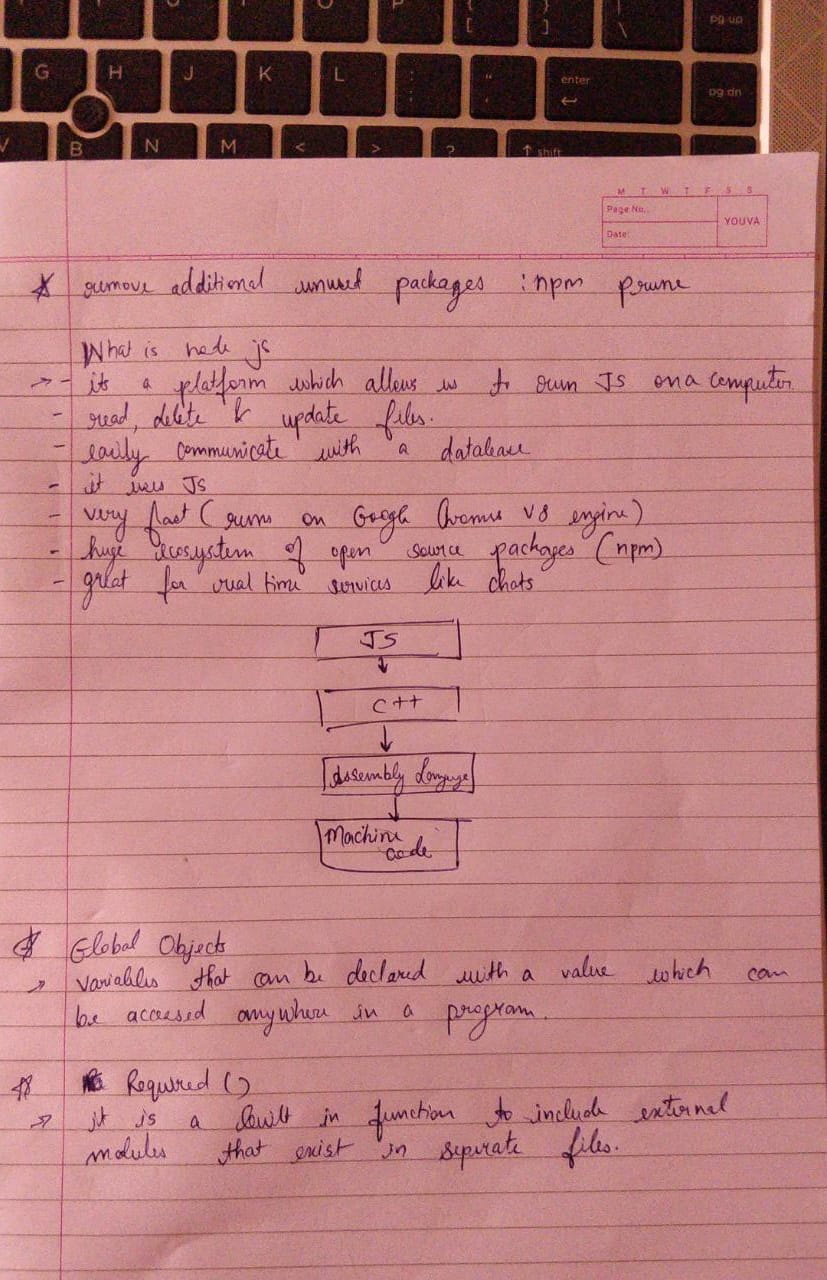 { [
} ]
| \
pg up
G H J K L : ; " ' enter pg dn
V B N M < > ? shift
M T W T F S S
Page No.:
YOUVA
Date:
remove additional unused packages : npm prune
What is node js
→ - its a platform which allows us to run JS on a computer.
- read, delete & update files.
- easily communicate with a database
- it uses JS
- very fast ( runs on Google Chromes V8 engine )
- huge ecosystem of open source packages ( npm )
- great for real time services like chats
JS
↓
C++
↓
Assembly Language
↓
Machine
code
Global Objects
→ variables that can be declared with a value which can
be accessed anywhere in a program.
Required ( )
→ it is a built in function to include external
modules that exist in seperate files.